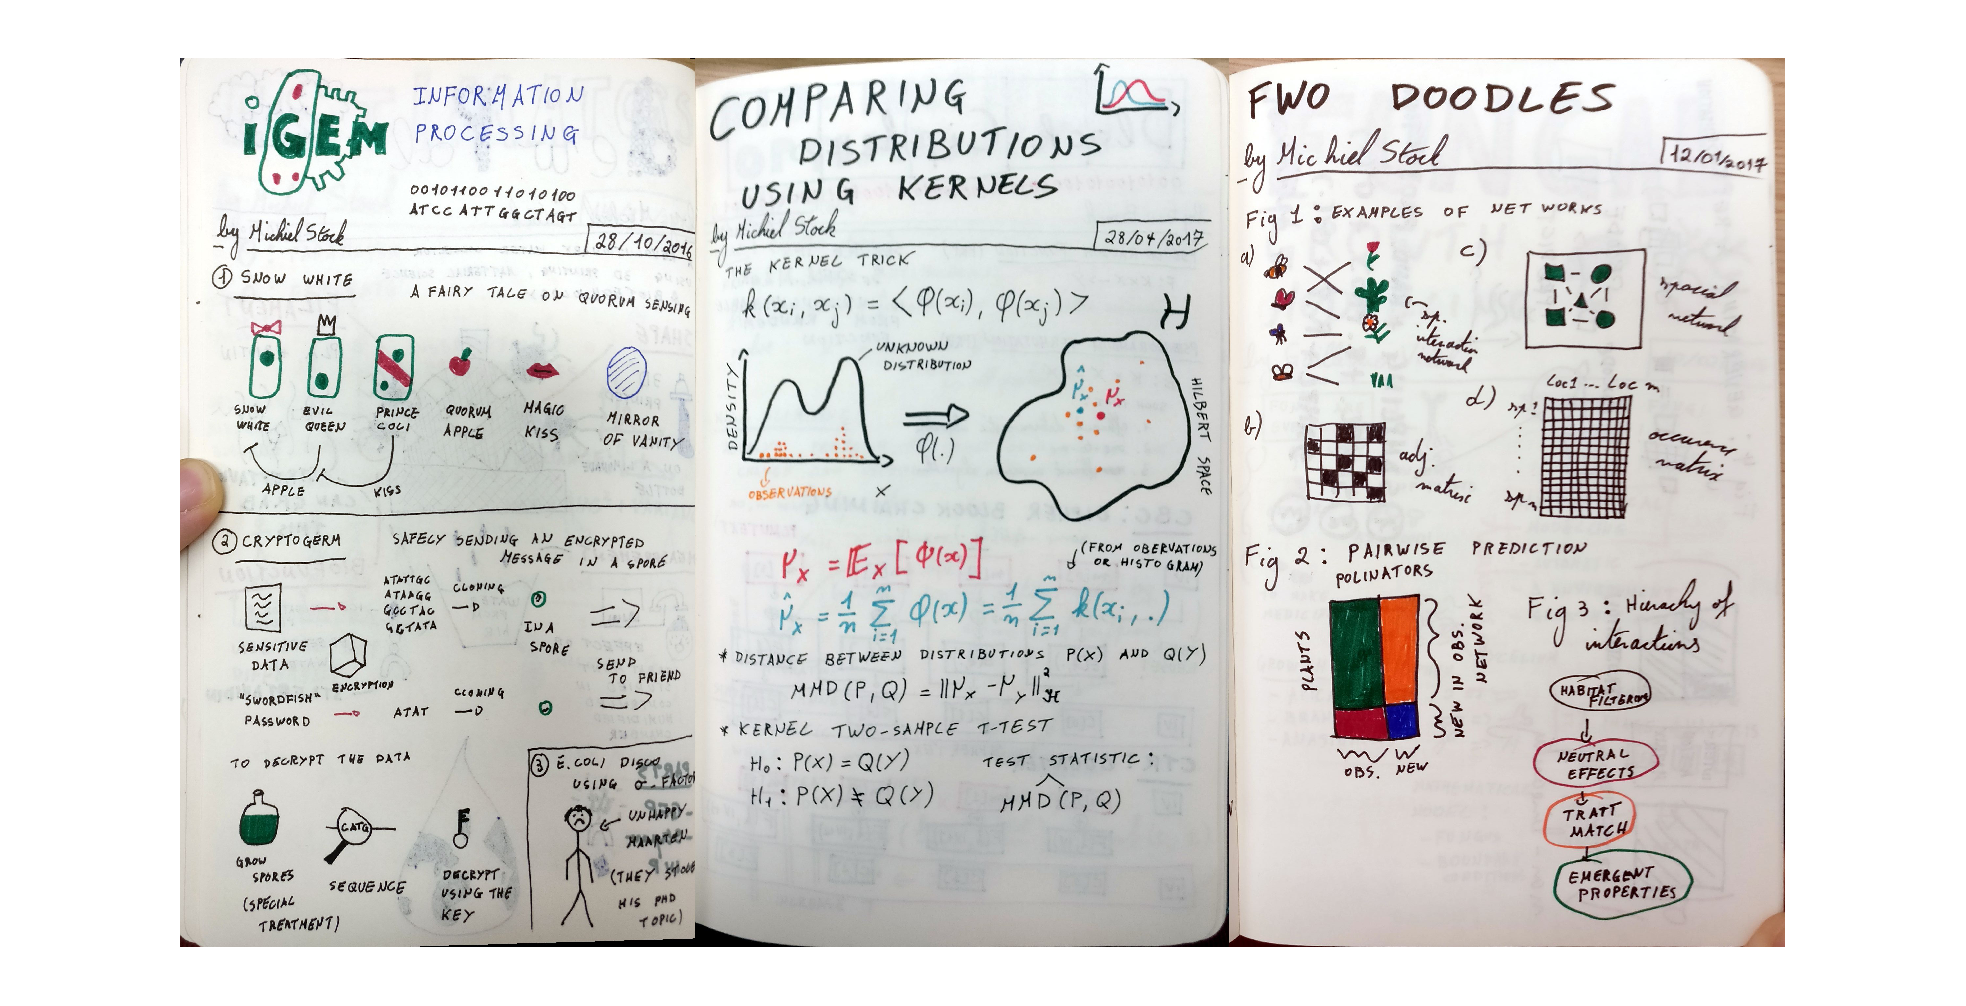 iGEM
INFORMATION
PROCESSING
0010110011010100
ATCCATTGGCTAGT
by Michiel Stock
28/10/2016
① SNOW WHITE
A FAIRY TALE ON QUORUM SENSING
SNOW WHITE
EVIL QUEEN
PRINCE COLI
QUORUM APPLE
MAGIC KISS
MIRROR OF VANITY
APPLE
KISS
② CRYPTOGERM
SAFELY SENDING AN ENCRYPTED
MESSAGE IN A SPORE
ATATTGC
ATAAGG
GCCTAC
GGTATA
CLONING
IN A
SPORE
SENSITIVE
DATA
ENCRYPTION
SEND
TO FRIEND
"SWORDFISH"
PASSWORD
ATAT
CLONING
TO DECRYPT THE DATA
GROW
SPORES
(SPECIAL
TREATMENT)
CATG
SEQUENCE
DECRYPT
USING THE
KEY
③ E.COLI DISCO
USING σ-FACTO
UNHAPPY
MAARTEN
(THEY
HIS PHD
TOPIC)
COMPARING
DISTRIBUTIONS
USING KERNELS
by Michiel Stock
28/04/2017
THE KERNEL TRICK
k(xi, xj) = <φ(xi), φ(xj)>
H
DENSITY
UNKNOWN
DISTRIBUTION
OBSERVATIONS
X
φ(.)
μ̂x
μx
HILBERT SPACE
μx = Ex[φ(x)]
(FROM OBERVATIONS
OR HISTOGRAM)
μ̂x = 1/n Σ i=1 n φ(x) = 1/n Σ i=1 n k(xi, .)
* DISTANCE BETWEEN DISTRIBUTIONS P(X) AND Q(Y)
MMD(P,Q) = ||μx - μy||²H
* KERNEL TWO-SAMPLE T-TEST
H0: P(X) = Q(Y)
H1: P(X) ≠ Q(Y)
TEST STATISTIC:
MMD(P,Q)
FWO DOODLES
by Michiel Stock
12/01/2017
Fig 1: EXAMPLES OF NETWORKS
a)
sp.
interaction
network
c)
spacial
network
b)
adj.
matrix
d)
Loc1 ... Loc m
sp1
sp n
occurence
matrix
Fig 2: PAIRWISE PREDICTION
POLINATORS
PLANTS
NEW IN OBS.
NETWORK
OBS. NEW
Fig 3: Hierachy of
interactions
HABITAT
FILTERING
NEUTRAL
EFFECTS
TRAIT
MATCH
EMERGENT
PROPERTIES